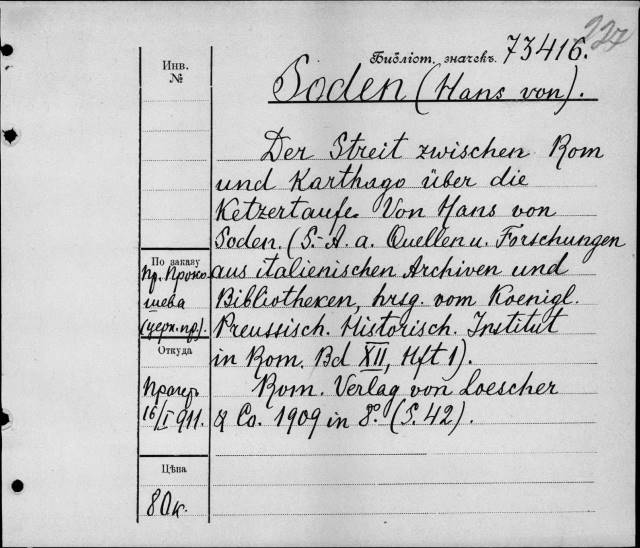 227
Библіот. значекъ. 73416.
Инв.
№
Soden (Hans von).
Der Streit zwischen Rom
und Karthago über die
Ketzertaufe. Von Hans von
Soden. (S.-A. a. Quellen u. Forschungen
aus italienischen Archiven und
Bibliotheken, hrsg. vom Koenigl.
Preussisch. Historisch. Institut
in Rom. Bd XII, Hft 1).
Rom. Verlag von Loescher
& Co. 1909 in 8°. (S. 42).
По заказу
Пр. Проко
шева
(церк. пр.).
Откуда
Прагеръ
16/I 911.
Цѣна
80 к.